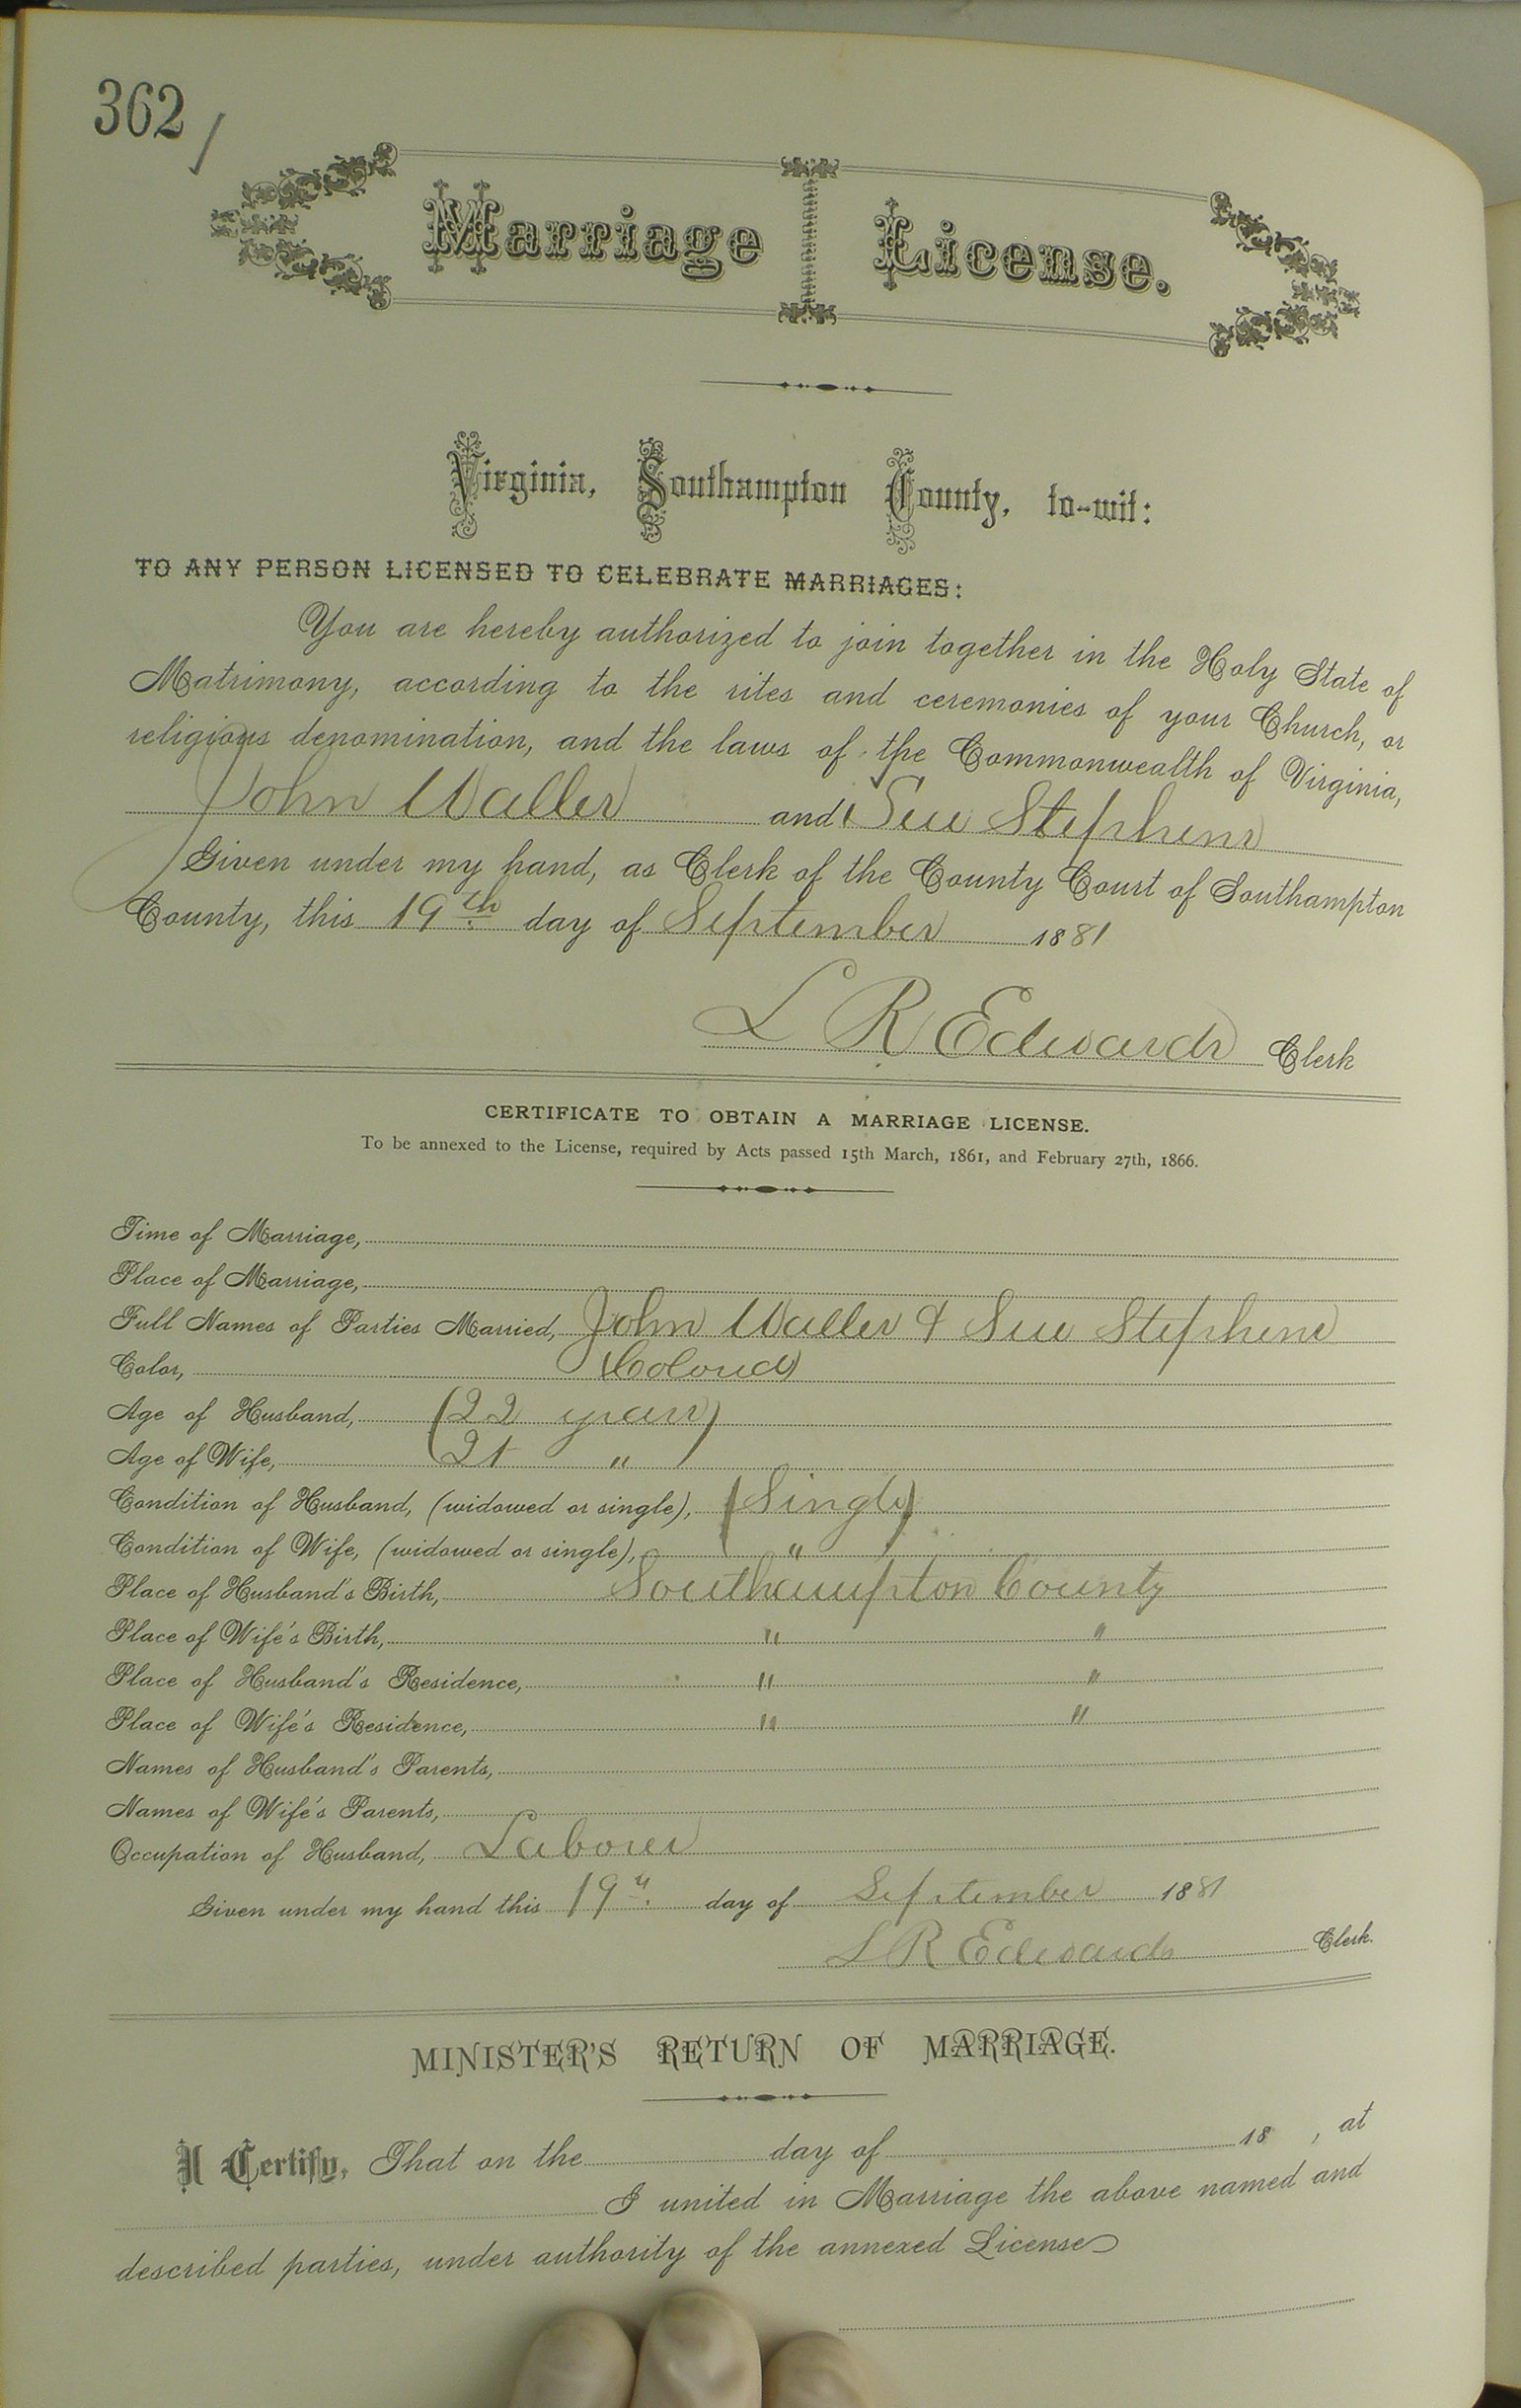 362 /
Marriage License.
Virginia, Southampton County, to-wit:
TO ANY PERSON LICENSED TO CELEBRATE MARRIAGES:
You are hereby authorized to join together in the Holy State of
Matrimony, according to the rites and ceremonies of your Church, or
religious denomination, and the laws of the Commonwealth of Virginia,
John Waller and Sue Stephens
Given under my hand, as Clerk of the County Court of Southampton
County, this 19th day of September 1881
L R Edwards Clerk
CERTIFICATE TO OBTAIN A MARRIAGE LICENSE.
To be annexed to the License, required by Acts passed 15th March, 1861, and February 27th, 1866.
Time of Marriage,
Place of Marriage,
Full Names of Parties Married, John Waller & Sue Stephens
Color, (Colored)
Age of Husband, (22 years)
Age of Wife, 21 "
Condition of Husband, (widowed or single), (Single)
Condition of Wife, (widowed or single), "
Place of Husband's Birth, Southampton County
Place of Wife's Birth, " "
Place of Husband's Residence, " "
Place of Wife's Residence, " "
Names of Husband's Parents,
Names of Wife's Parents,
Occupation of Husband, Laborer
Given under my hand this 19" day of September 1881
L R Edwards Clerk.
MINISTER'S RETURN OF MARRIAGE.
I Certify, That on the day of 18 , at
I united in Marriage the above named and
described parties, under authority of the annexed License